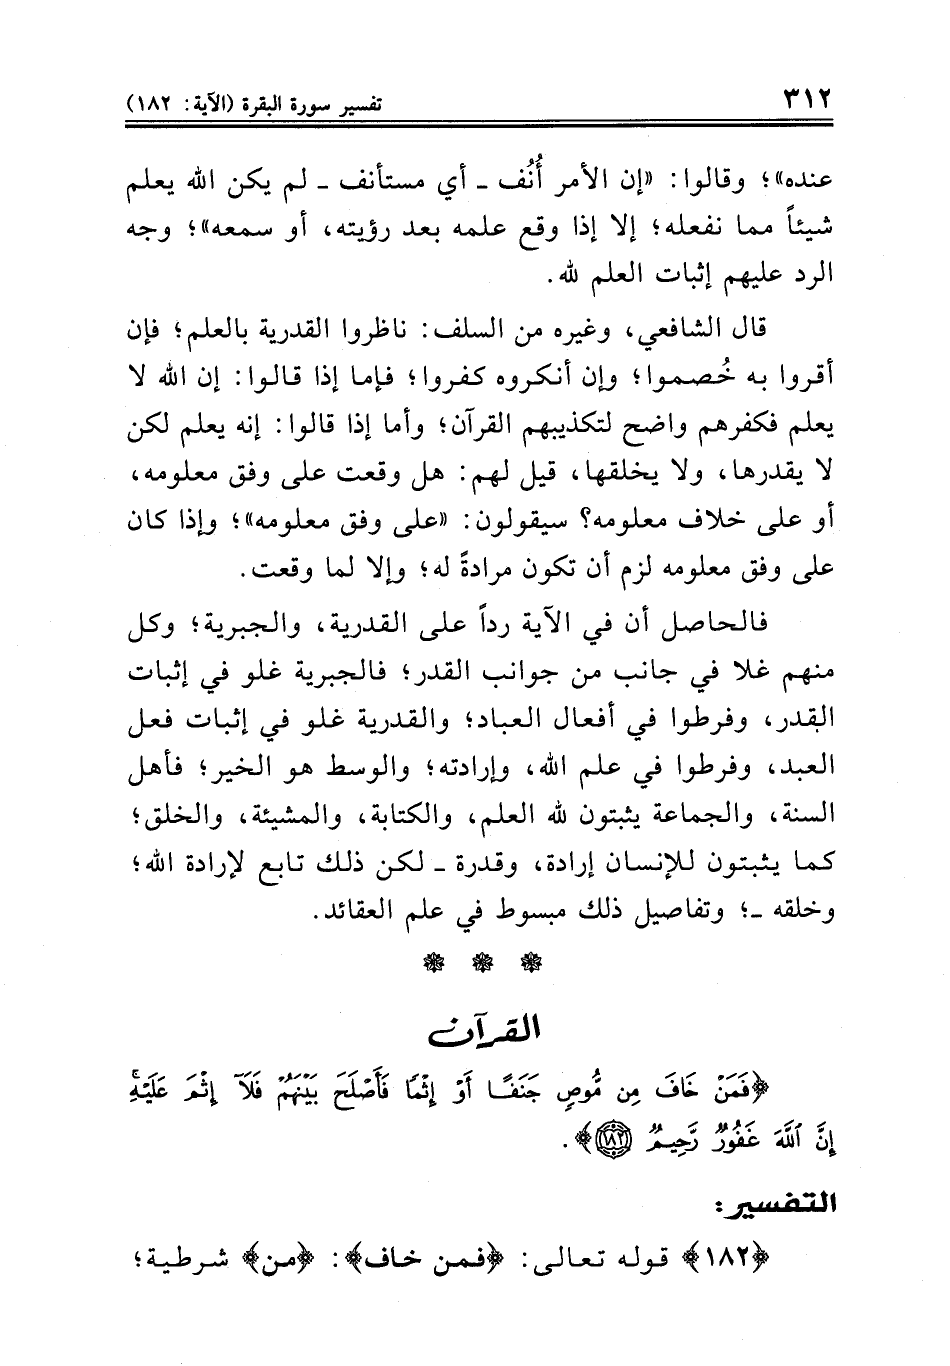 ٣١٢ تفسير سورة البقرة (الآية: ١٨٢)
عنده»؛ وقالوا: «إن الأمر أُنُف ـ أي مستأنف ـ لم يكن الله يعلم
شيئاً مما نفعله؛ إلا إذا وقع علمه بعد رؤيته، أو سمعه»؛ وجه
الرد عليهم إثبات العلم لله.
قال الشافعي، وغيره من السلف: ناظروا القدرية بالعلم؛ فإن
أقروا به خُصموا؛ وإن أنكروه كفروا؛ فإما إذا قالوا: إن الله لا
يعلم فكفرهم واضح لتكذيبهم القرآن؛ وأما إذا قالوا: إنه يعلم لكن
لا يقدرها، ولا يخلقها، قيل لهم: هل وقعت على وفق معلومه،
أو على خلاف معلومه؟ سيقولون: «على وفق معلومه»؛ وإذا كان
على وفق معلومه لزم أن تكون مرادةً له؛ وإلا لما وقعت.
فالحاصل أن في الآية رداً على القدرية، والجبرية؛ وكل
منهم غلا في جانب من جوانب القدر؛ فالجبرية غلو في إثبات
القدر، وفرطوا في أفعال العباد؛ والقدرية غلو في إثبات فعل
العبد، وفرطوا في علم الله، وإرادته؛ والوسط هو الخير؛ فأهل
السنة، والجماعة يثبتون لله العلم، والكتابة، والمشيئة، والخلق؛
كما يثبتون للإنسان إرادة، وقدرة ـ لكن ذلك تابع لإرادة الله؛
وخلقه ـ؛ وتفاصيل ذلك مبسوط في علم العقائد.
القرآن
﴿فَمَنْ خَافَ مِن مُّوصٍ جَنَفًا أَوْ إِثْمًا فَأَصْلَحَ بَيْنَهُمْ فَلَآ إِثْمَ عَلَيْهِۚ
إِنَّ ٱللَّهَ غَفُورٌ رَّحِيمٌ ١٨٢﴾.
التفسير:
﴿١٨٢﴾ قوله تعالى: ﴿فمن خاف﴾: ﴿من﴾ شرطية؛